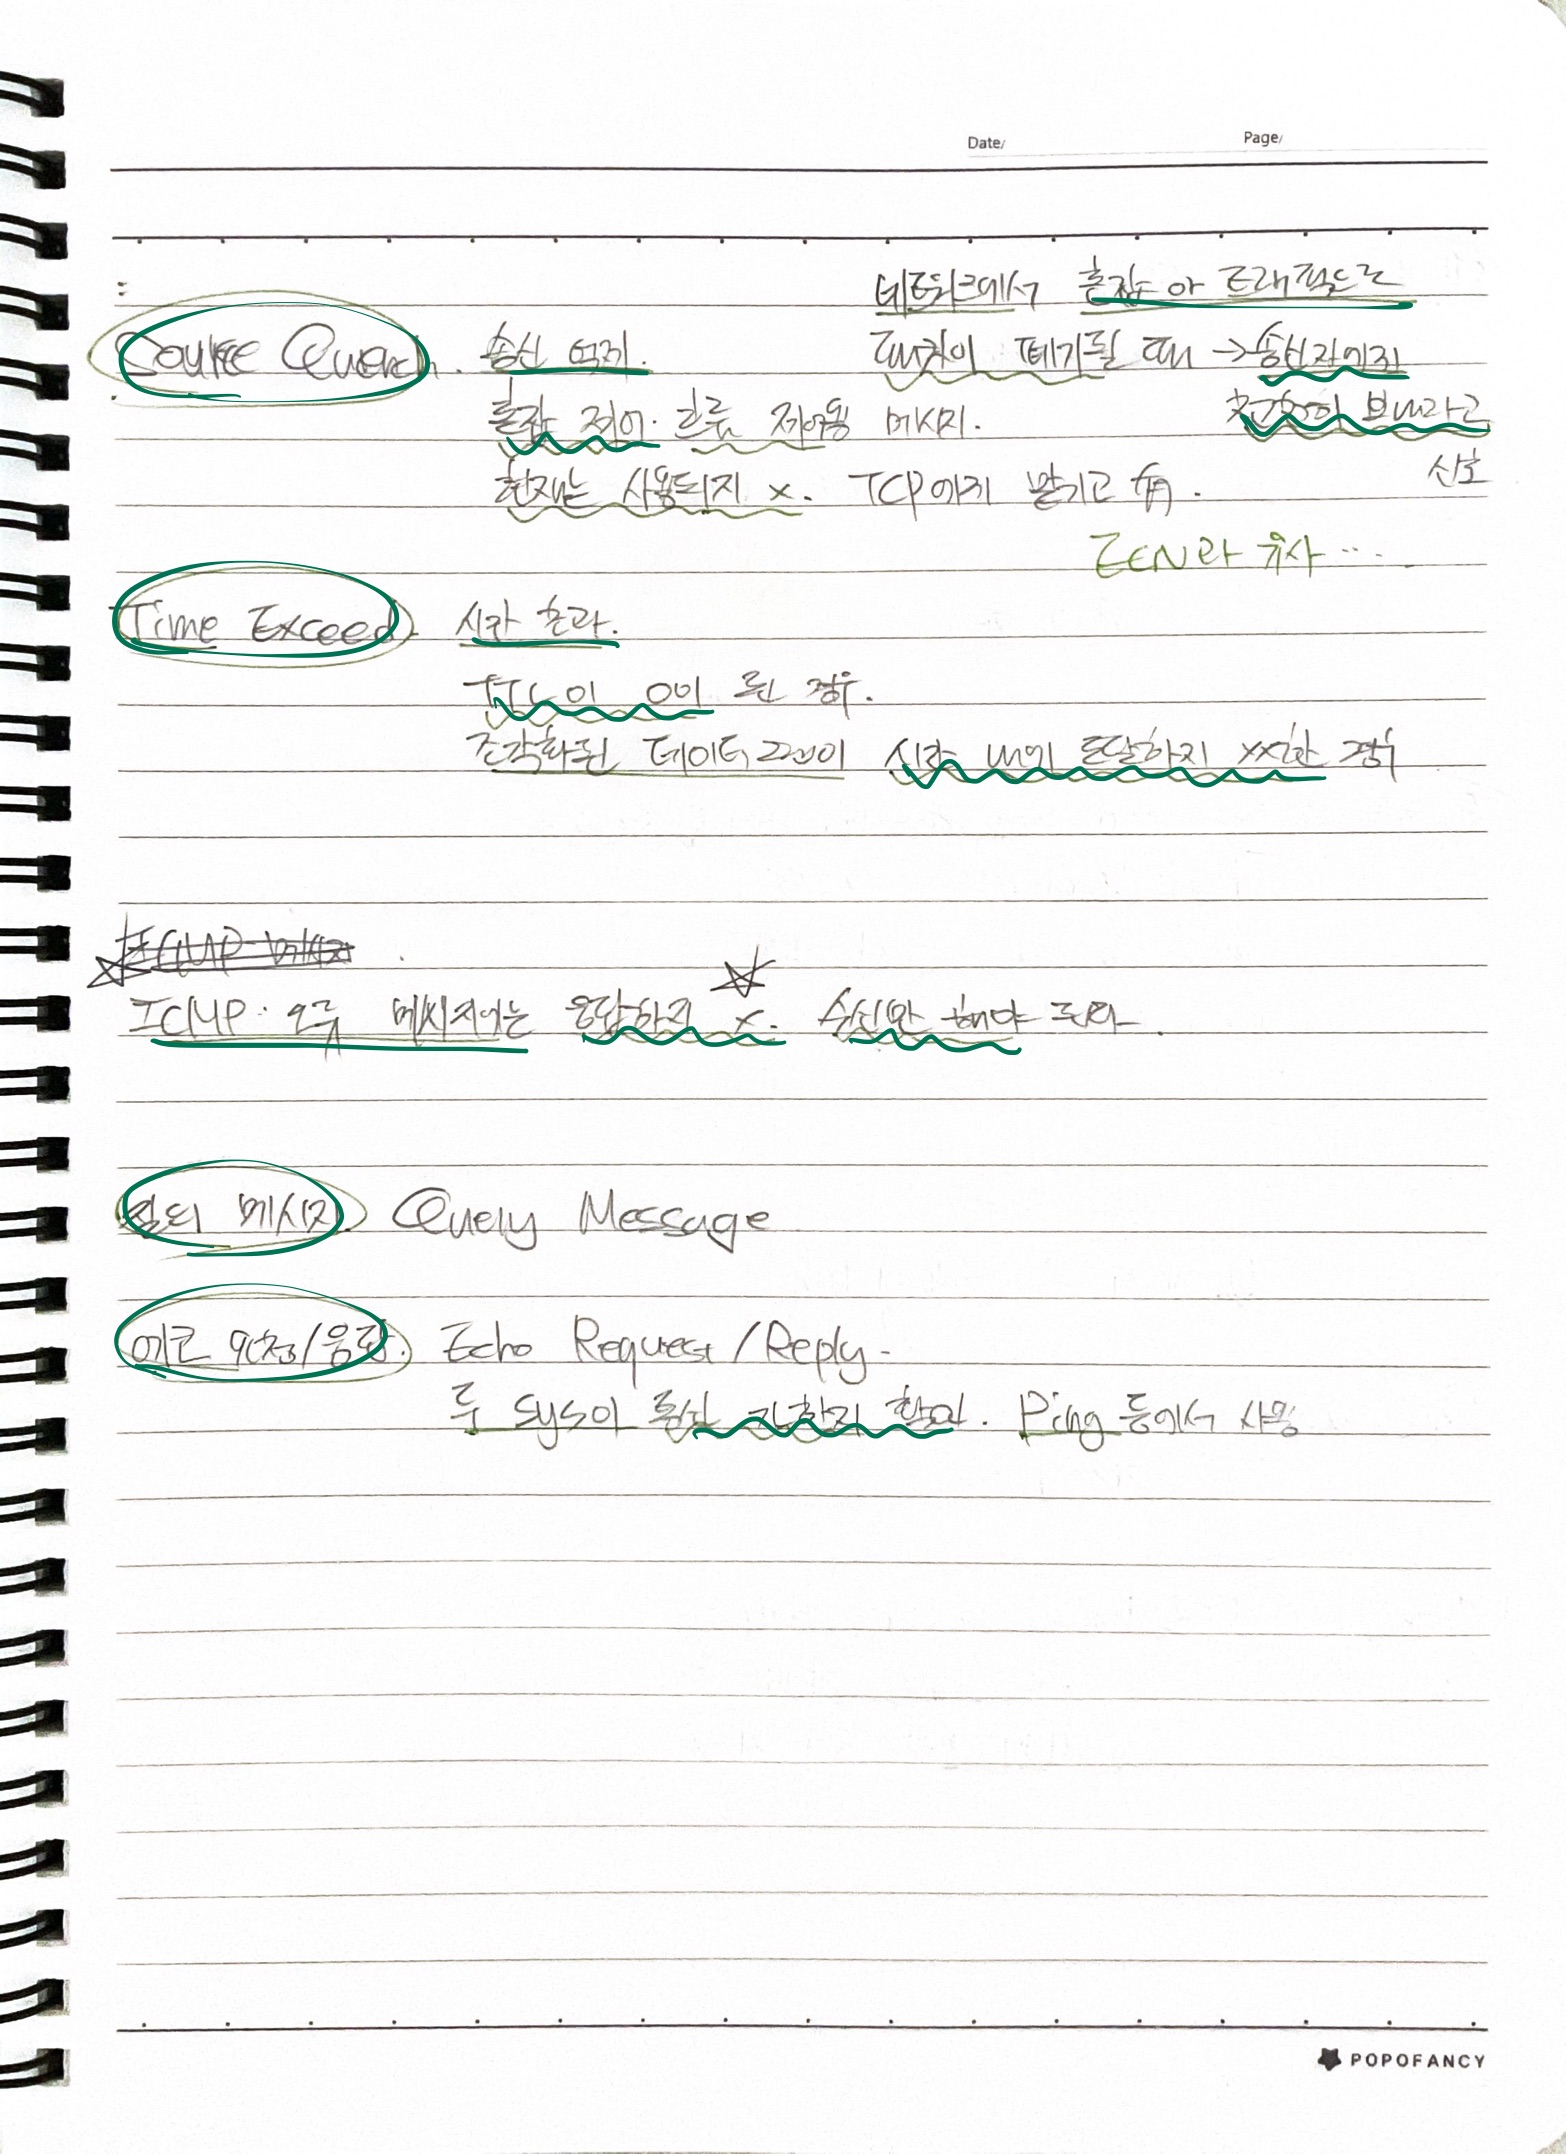 Date/ Page/
:
네트워크에서 혼잡 or 트래픽으로
패킷이 폐기될 때 → 송신자에게
천천히 보내라고
신호
Source Quench. 송신 억제.
혼잡 제어·흐름 제어용 메시지.
현재는 사용되지 x. TCP에게 맡기고 有.
ECN과 유사…
Time Exceed 시간 초과.
TTL이 0이 된 경우.
조각화된 데이터그램이 시간 내에 도달하지 xx한 경우
ICMP 메시지
ICMP 오류 메시지에는 응답하지 x. 송신만 해야 한다.
질의 메시지 Query Message
에코 요청/응답. Echo Request/Reply.
두 sys이 통신 가능한지 확인. Ping 등에서 사용
POPOFANCY